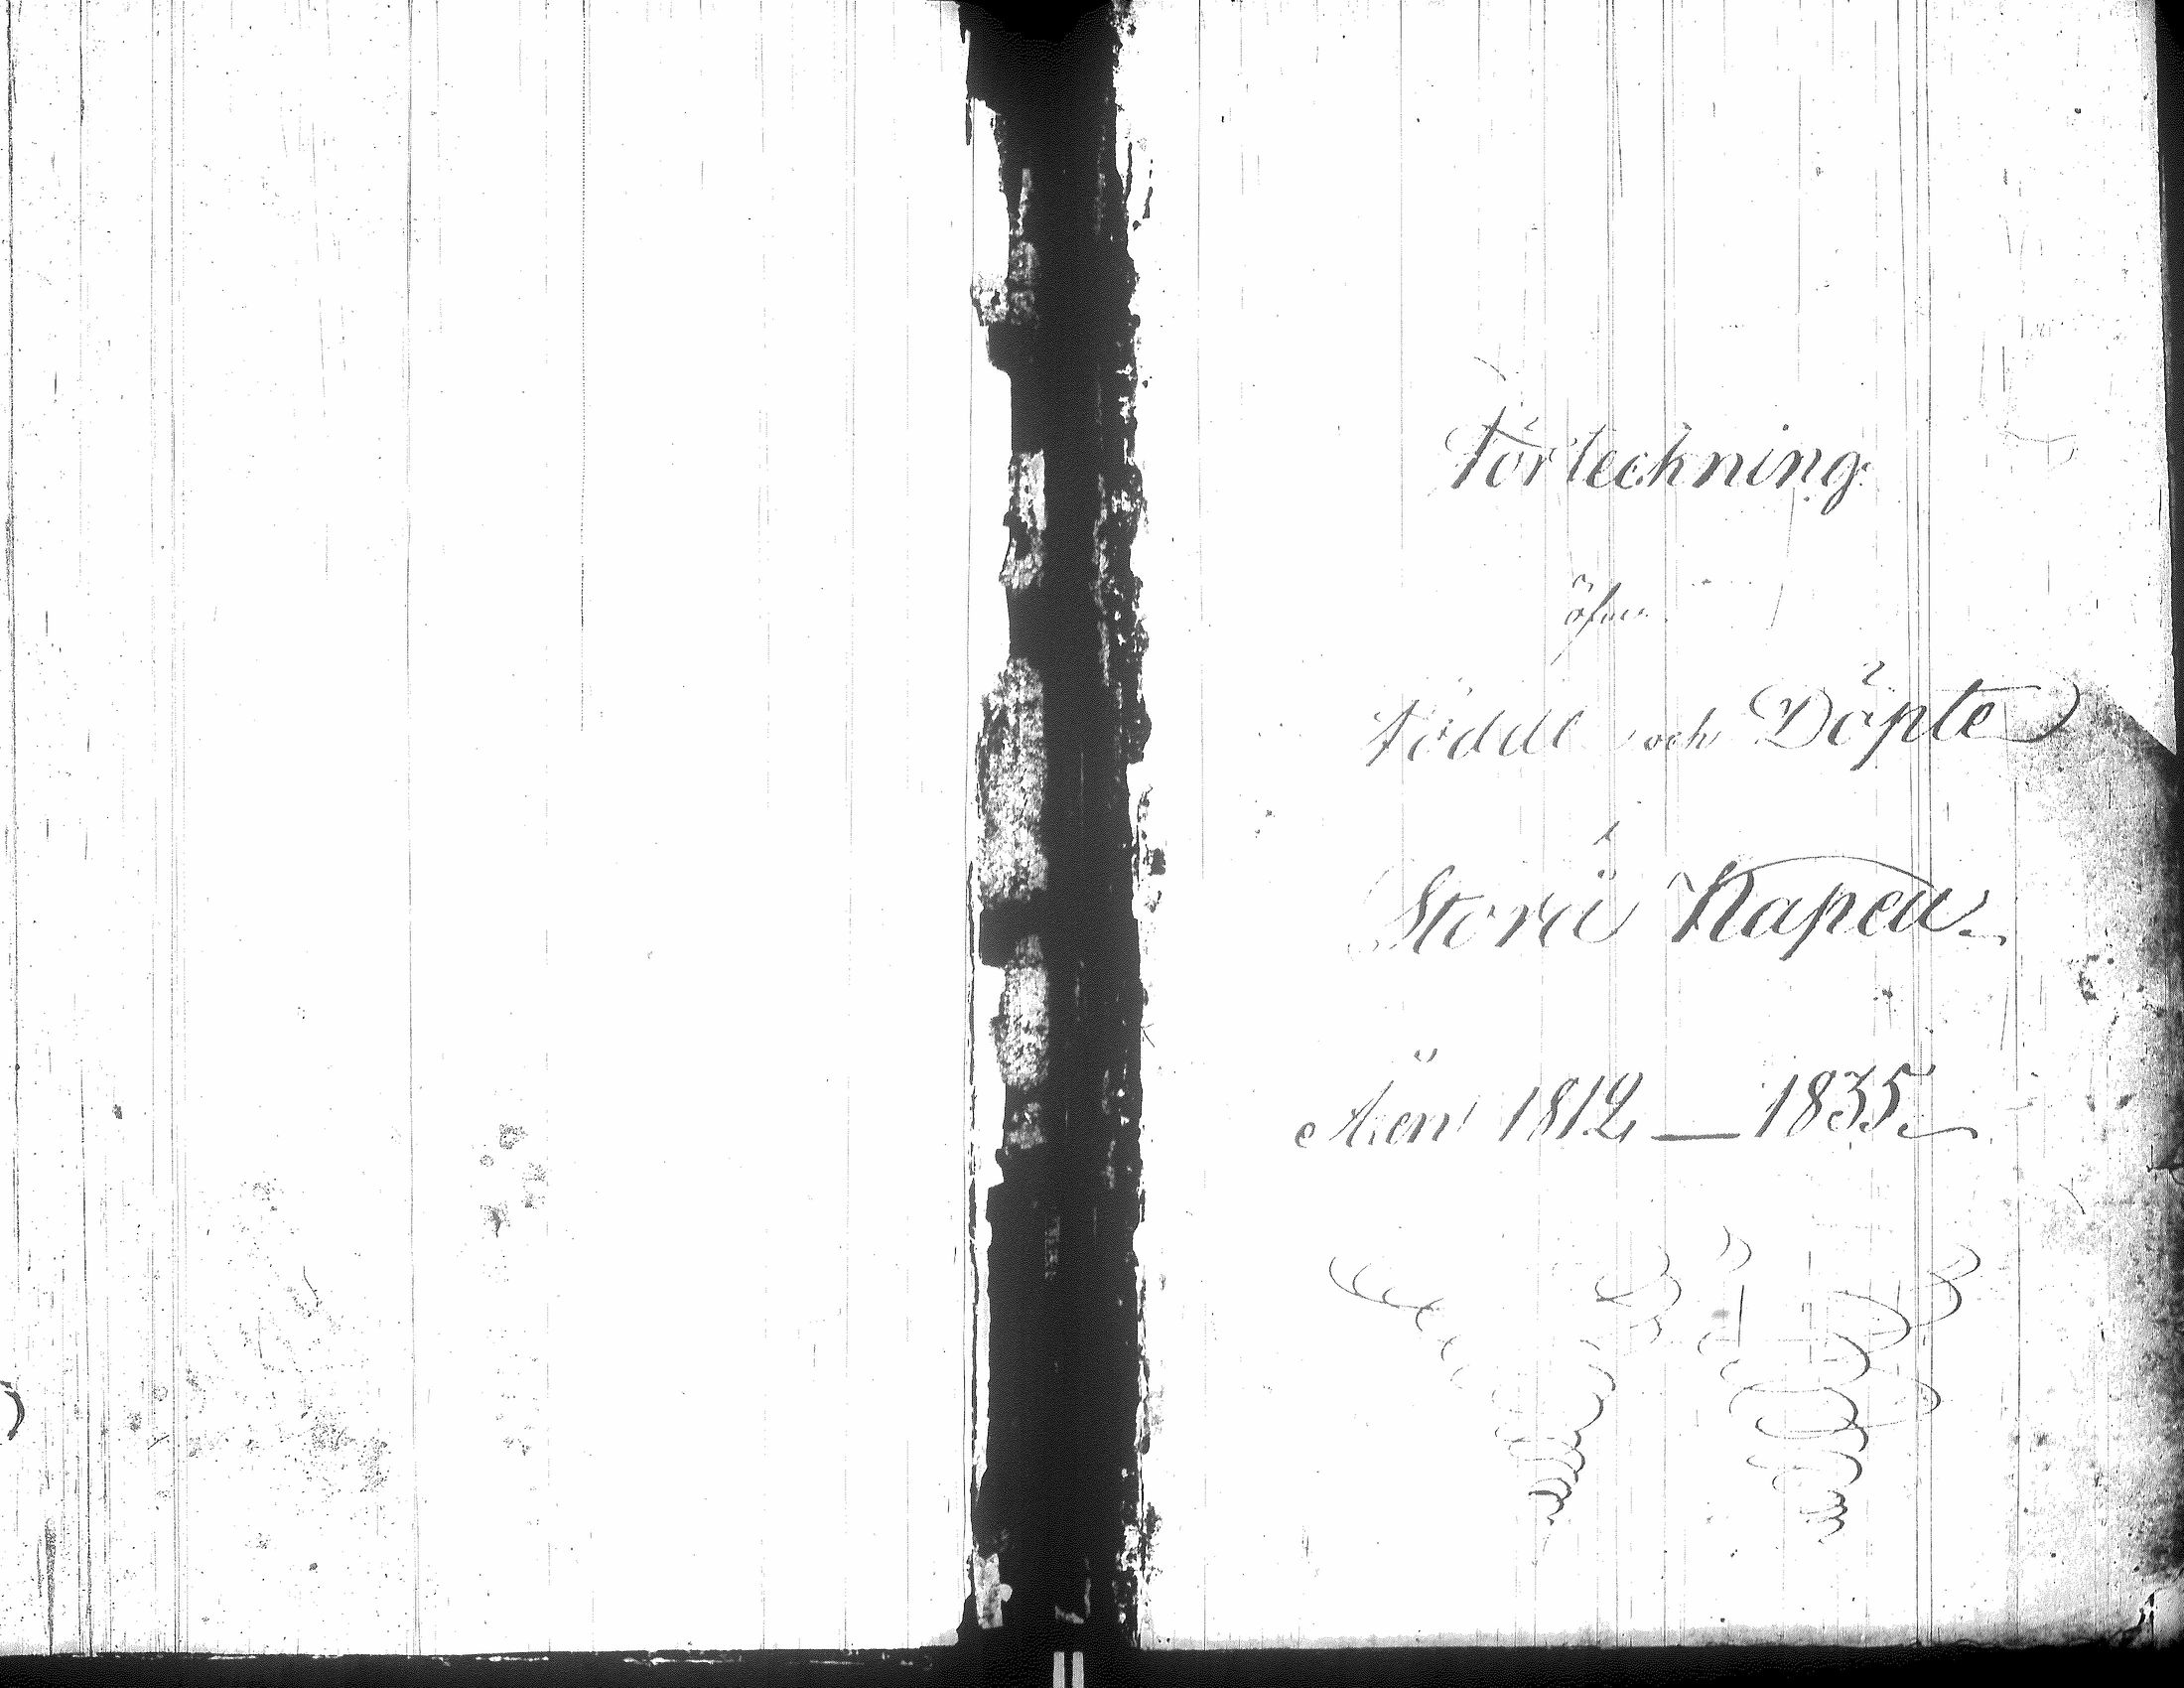 Förteckning
öfver
Födde och Döpte
i
Storå Kapell
Åren 1812 — 1835